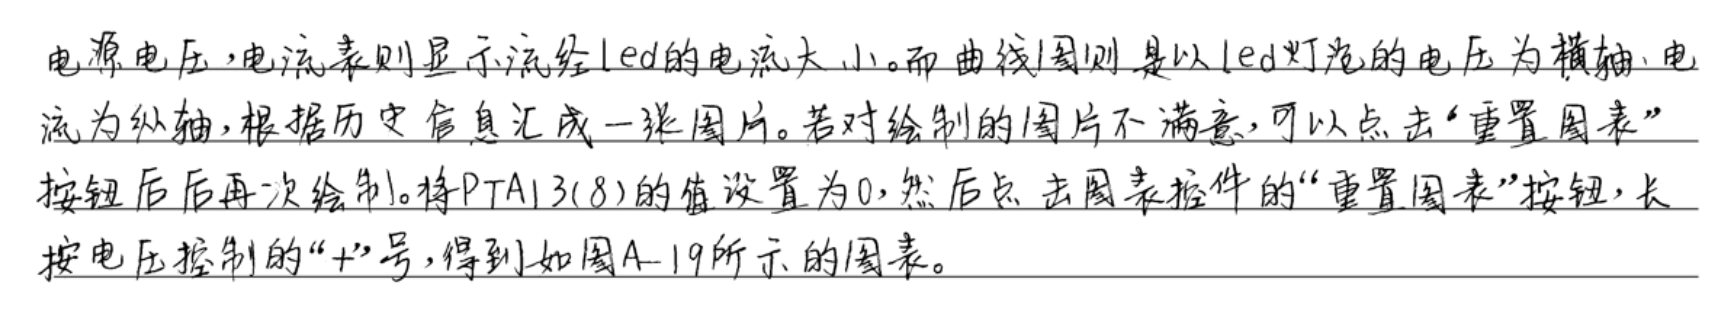 电源电压,电流表则显示流经led的电流大小。而曲线图则是以led灯泡的电压为横轴、电
流为纵轴,根据历史信息汇成一张图片。若对绘制的图片不满意,可以点击“重置图表”
按钮后后再次绘制。将PTA13(8)的值设置为0,然后点击图表控件的“重置图表”按钮,长
按电压控制的“+”号,得到如图A-19所示的图表。